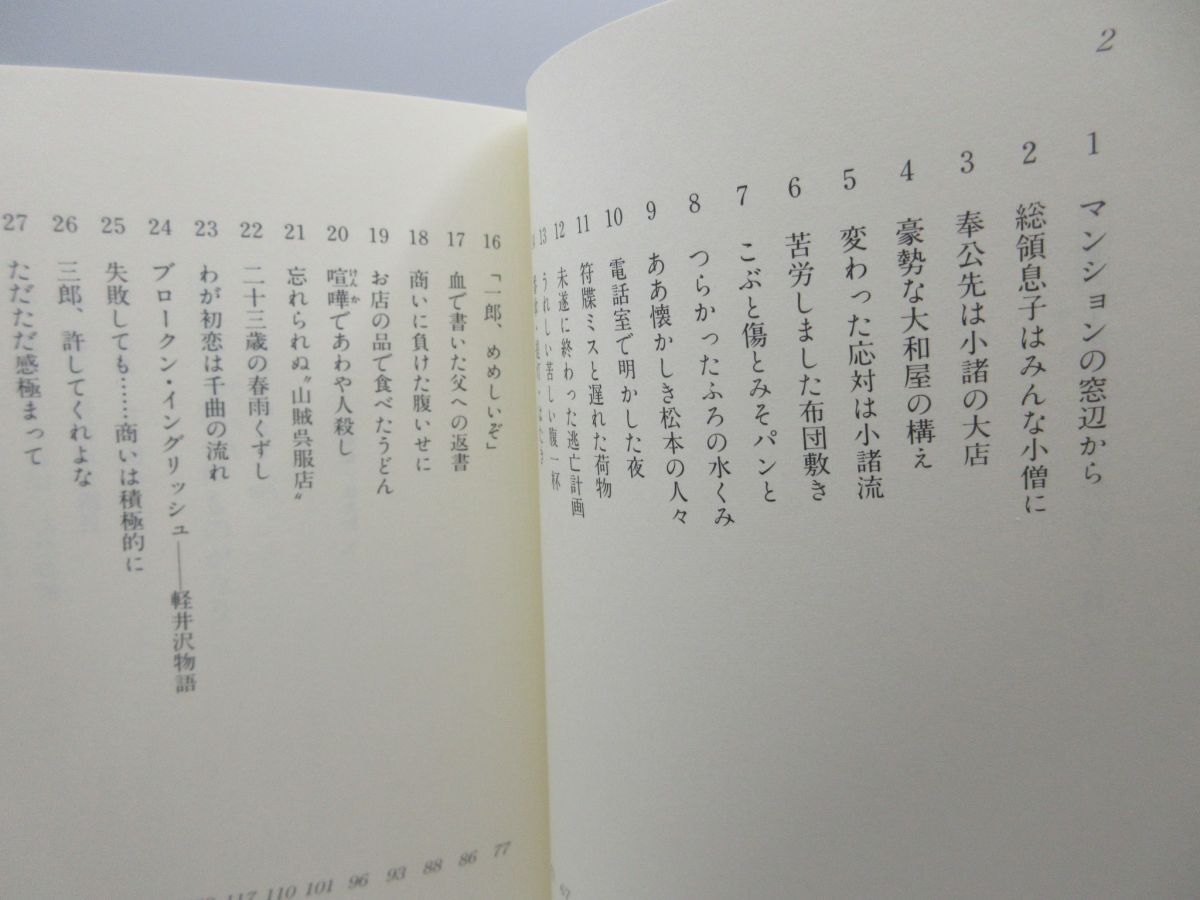 2
1 マンションの窓辺から
2 総領息子はみんな小僧に
3 奉公先は小諸の大店
4 豪勢な大和屋の構え
5 変わった応対は小諸流
6 苦労しました布団敷き
7 こぶと傷とみそパンと
8 つらかったふろの水くみ
9 ああ懐かしき松本の人々
10 電話室で明かした夜
11 符牒ミスと遅れた荷物
12 未遂に終わった逃亡計画
13 うれしい苦しい腹一杯
16 「一郎、めめしいぞ」
17 血で書いた父への返書
18 商いに負けた腹いせに
19 お店の品で食べたうどん
20 喧嘩であわや人殺し
けんか
21 忘れられぬ〝山賊呉服店〟
22 二十三歳の春雨くずし
23 わが初恋は千曲の流れ
24 ブロークン・イングリッシュ――軽井沢物語
25 失敗しても……商いは積極的に
26 三郎、許してくれよな
27 ただただ感極まって
77
86
88
93
96
101
110
117